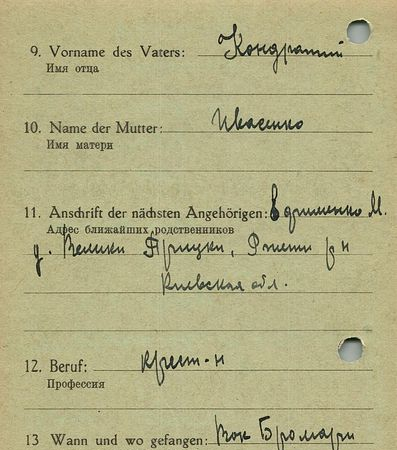 9. Vorname des Vaters: Кондратий
Имя отца
10. Name der Mutter: Ивасенко
Имя матери
11. Anschrift der nächsten Angehörigen: М.
Адрес ближайших родственников
д. Велики Прицки, р н
Киевская обл.
12. Beruf: крест-н
Профессия
13 Wann und wo gefangen: